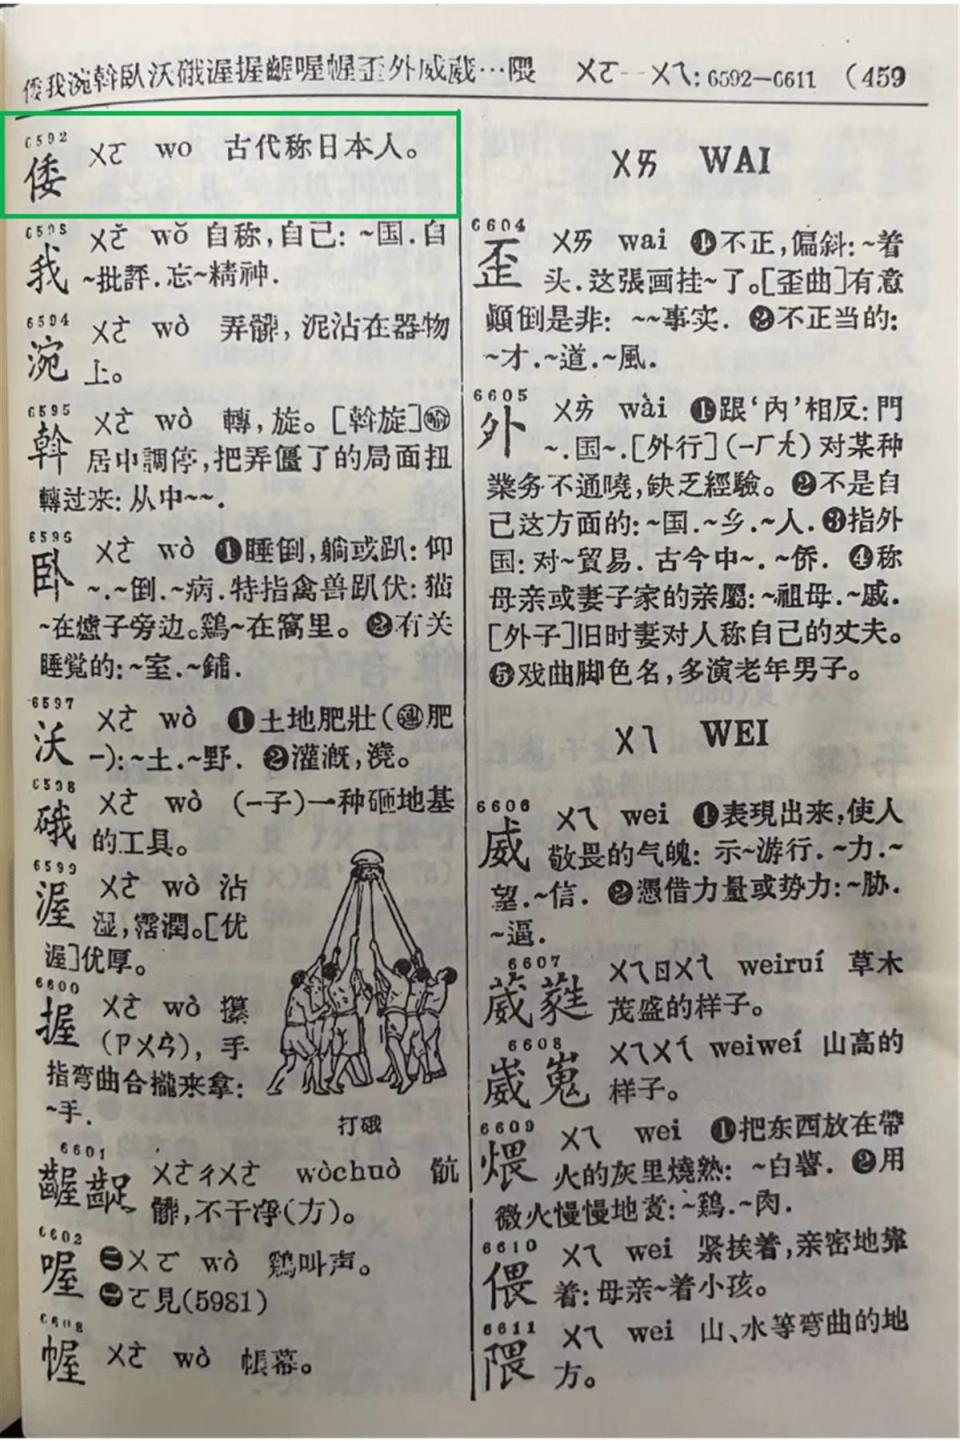 倭我涴斡臥沃硪渥握齷喔幄歪外威葳…隈 ㄨㄛ—ㄨㄟ: 6592—6611 (459
6592
倭 ㄨㄛ wo 古代称日本人。
我 ㄨㄛˇ wǒ 自称,自己: ~国.自
~批評.忘~精神.
6594
涴 ㄨㄛˋ wò 弄髒, 泥沾在器物
上。
6595
斡 ㄨㄛˋ wò 轉, 旋。[斡旋]㊗
居中調停,把弄僵了的局面扭
轉过来: 从中~~.
臥 ㄨㄛˋ wò ❶睡倒,躺或趴: 仰
~.~倒.~病.特指禽兽趴伏: 猫
~在爐子旁边。鷄~在窩里。❷有关
睡覚的:~室.~鋪.
6597
沃 ㄨㄛˋ wò ❶土地肥壯(㊣肥
—):~土.~野. ❷灌漑,澆。
6598
硪 ㄨㄛˋ wò (—子)一种砸地基
的工具。
6599
渥 ㄨㄛˋ wò 沾
湿,霑潤。[优
渥]优厚。
6600
握 ㄨㄛˋ wò 攥
(ㄗㄨㄢˋ), 手
指弯曲合攏来拿:
~手.
打硪
6601
齷齪 ㄨㄛˋㄔㄨㄛˋ wòchuò 骯
髒,不干凈(方)。
6602
喔 ㊀ㄨㄛ wò 鷄叫声。
㊁ㄛ見(5981)
幄 ㄨㄛˋ wò 帳幕。
ㄨㄞ WAI
6604
歪 ㄨㄞ wai ❶不正,偏斜: ~着
头.这張画挂~了。[歪曲]有意
顚倒是非: ~~事实. ❷不正当的:
~才.~道.~風.
6605
外 ㄨㄞˋ wài ❶跟‘內’相反: 門
~.国~.[外行](—ㄏㄤˊ)对某种
業务不通曉,缺乏經驗。❷不是自
己这方面的:~国.~乡.~人.❸指外
国: 对~貿易. 古今中~.~侨. ❹称
母亲或妻子家的亲屬:~祖母.~戚.
[外子]旧时妻对人称自己的丈夫。
❺戏曲脚色名,多演老年男子。
ㄨㄟ WEI
6606
威 ㄨㄟ wei ❶表現出来,使人
敬畏的气魄: 示~游行.~力.~
望.~信. ❷憑借力量或势力:~胁.
~逼.
6607
葳蕤 ㄨㄟㄖㄨㄟˊ weiruí 草木
茂盛的样子。
6608
崴嵬 ㄨㄟㄨㄟˊ weiweí 山高的
样子。
6609
煨 ㄨㄟ wei ❶把东西放在帶
火的灰里燒熟: ~白薯. ❷用
微火慢慢地煑:~鷄.~肉.
6610
偎 ㄨㄟ wei 紧挨着,亲密地靠
着:母亲~着小孩。
6611
隈 ㄨㄟ wei 山、水等弯曲的地
方。